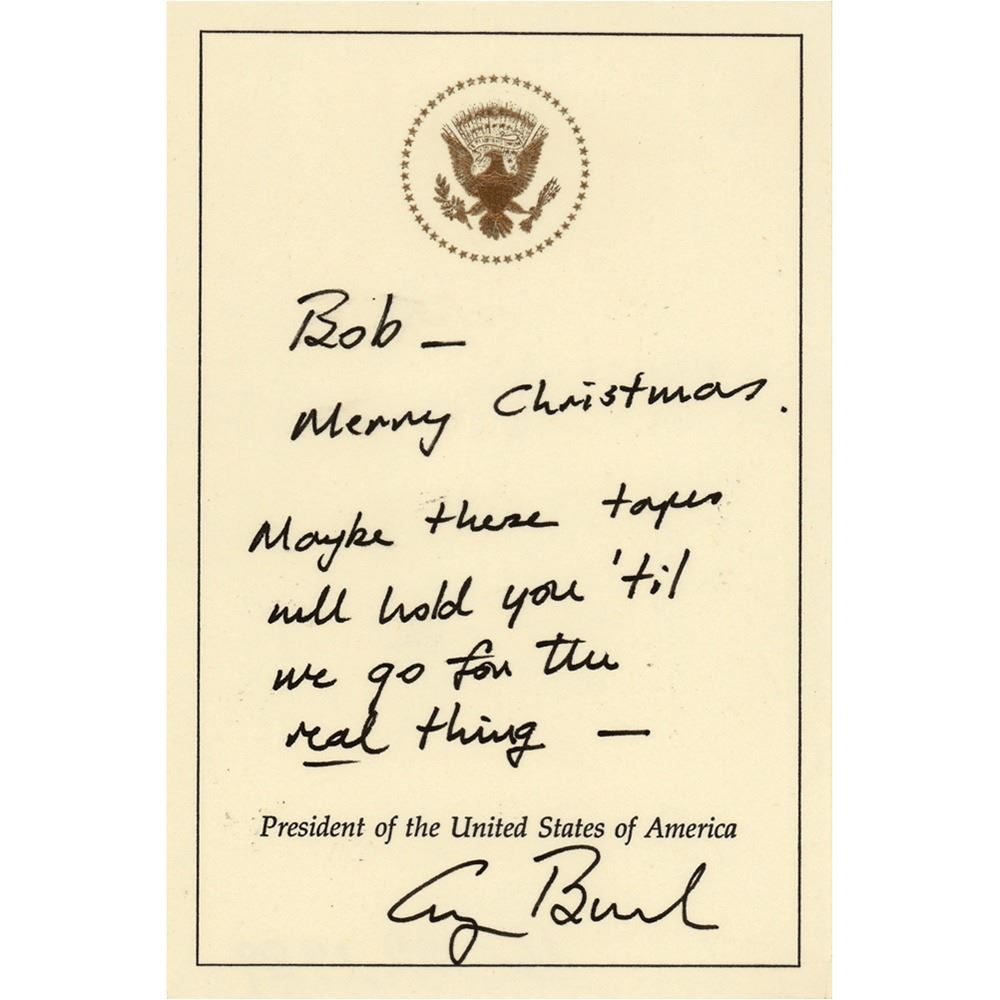 Bob —
Merry Christmas.
Maybe these tapes
will hold you 'til
we go for the
real thing —
President of the United States of America
Gug Bush